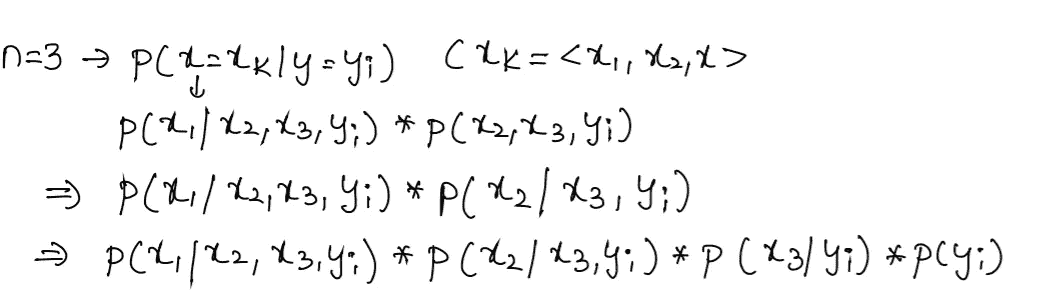 n=3 → P(x=xₖ|y=yᵢ) (xₖ=<x₁, x₂,x>
↓
P(x₁|x₂,x₃,yᵢ) * P(x₂,x₃,yᵢ)
⇒ P(x₁/x₂,x₃,yᵢ) * P(x₂|x₃,yᵢ)
⇒ P(x₁|x₂,x₃,yᵢ) * P(x₂|x₃,yᵢ) * P(x₃|yᵢ) * P(yᵢ)